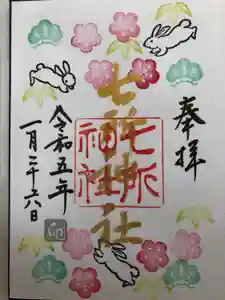 奉拝
七所神社
七所
神社
令和五年
一月二十六日
卯